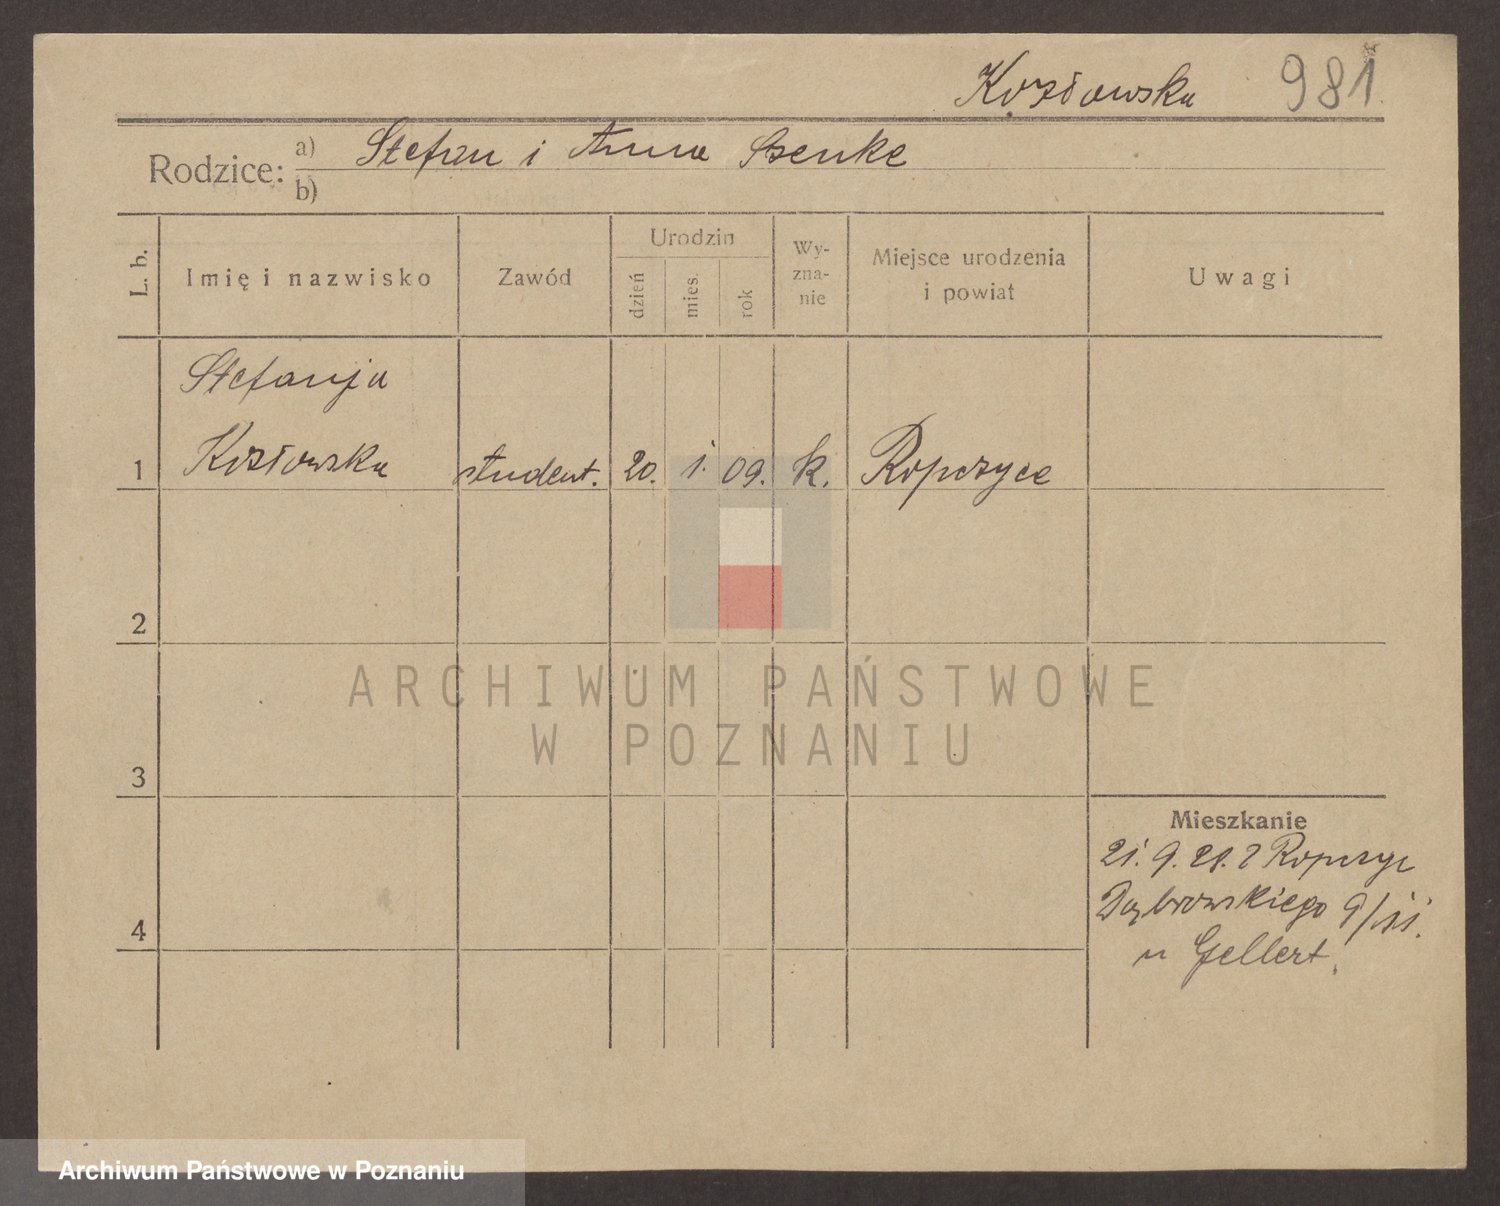 Kozłowska 981
Rodzice: a) Stefan i Anna Szenke
b)
L. b.
Imię i nazwisko
Zawód
Urodzin
dzień
mies.
rok
Wy-
zna-
nie
Miejsce urodzenia
i powiat
Uwagi
Stefanja
1 Kozłowska student. 20. 1. 09. k. Ropczyce
2
3
4
Mieszkanie
21. 9. 28. z Ropczyc
Dąbrowskiego 9/11.
u Gellert.
ARCHIWUM PAŃSTWOWE
W POZNANIU
Archiwum Państwowe w Poznaniu